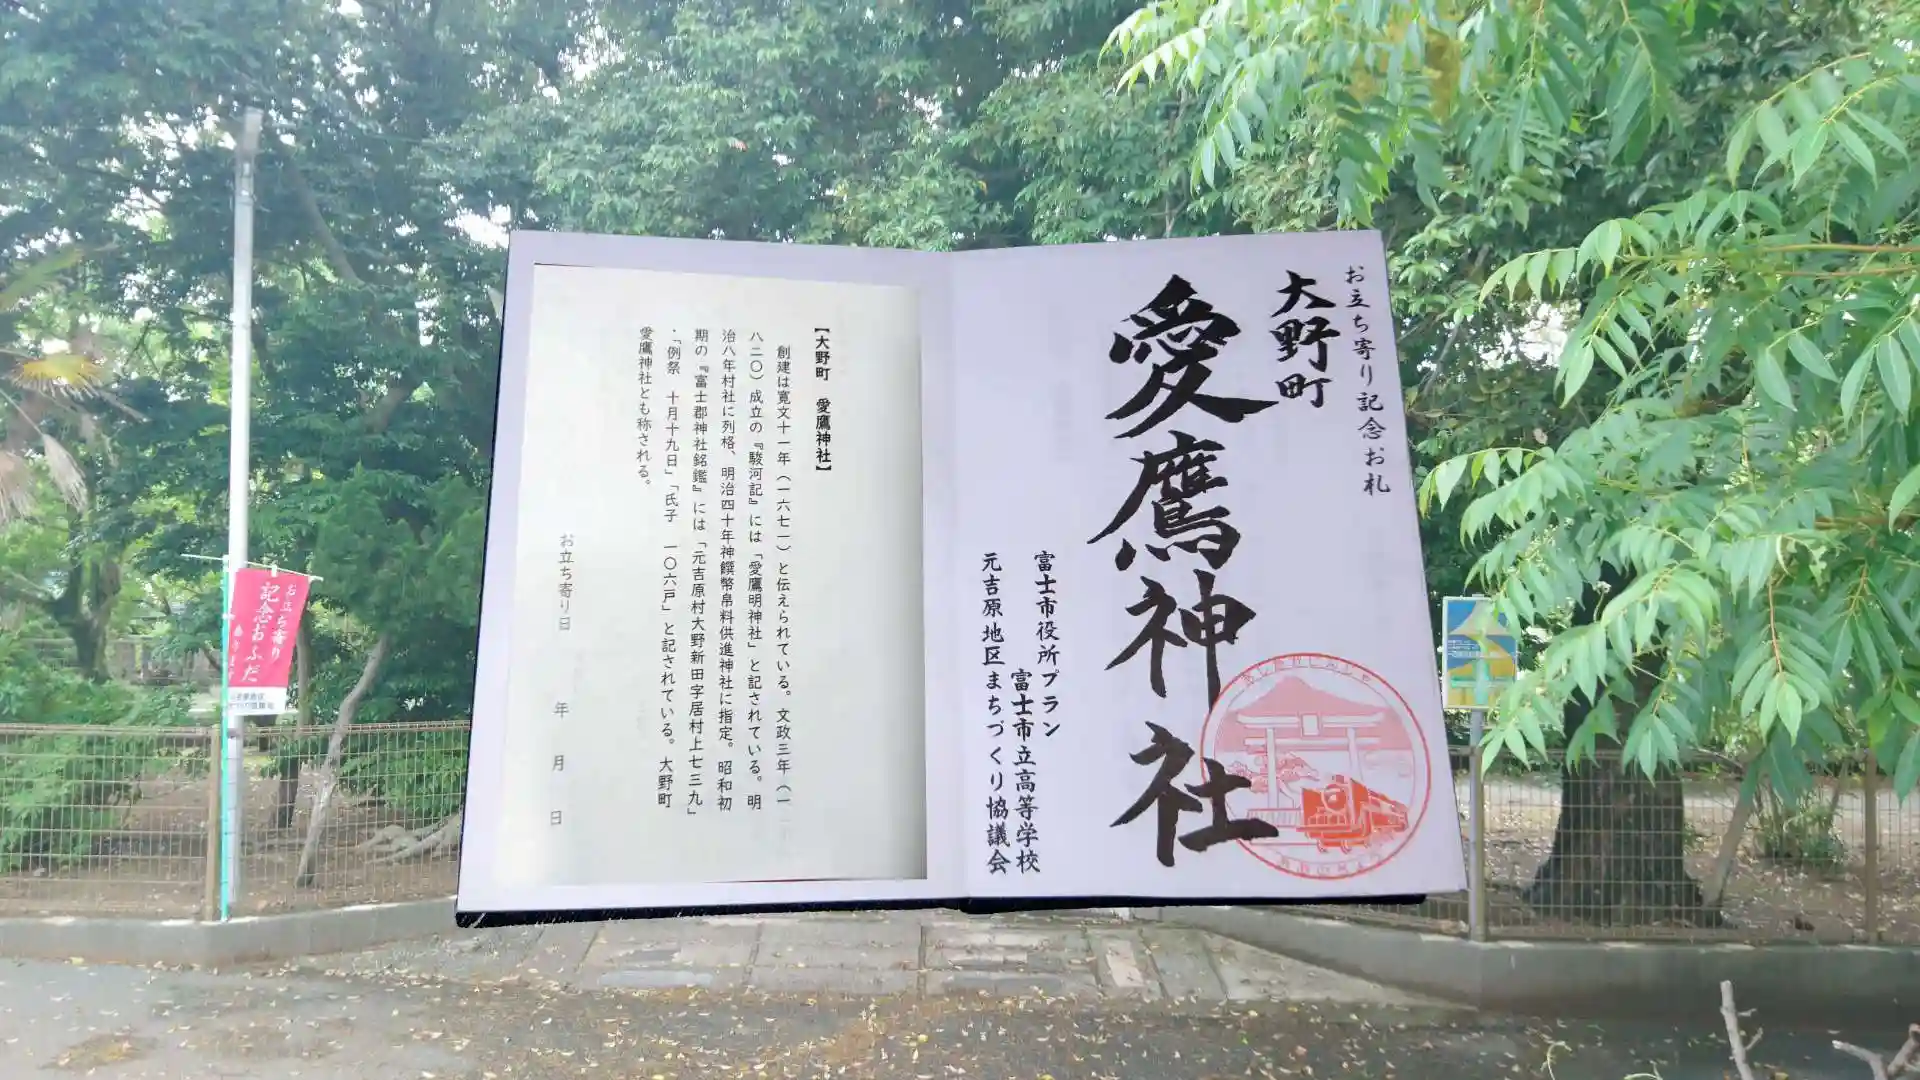 お立ち寄り記念お札
大野町
愛鷹神社
富士市役所プラン
富士市立高等学校
元吉原地区まちづくり協議会
【大野町　愛鷹神社】
創建は寛文十一年（一六七一）と伝えられている。文政三年（一
八二〇）成立の『駿河記』には「愛鷹明神社」と記されている。明
治八年村社に列格、明治四十年神饌幣帛料供進神社に指定。昭和初
期の『富士郡神社銘鑑』には「元吉原村大野新田字居村上七三九」
・「例祭　十月十九日」「氏子　一〇六戸」と記されている。大野町
愛鷹神社とも称される。
お立ち寄り日　年　月　日
お立ち寄り
記念おふだ
あります